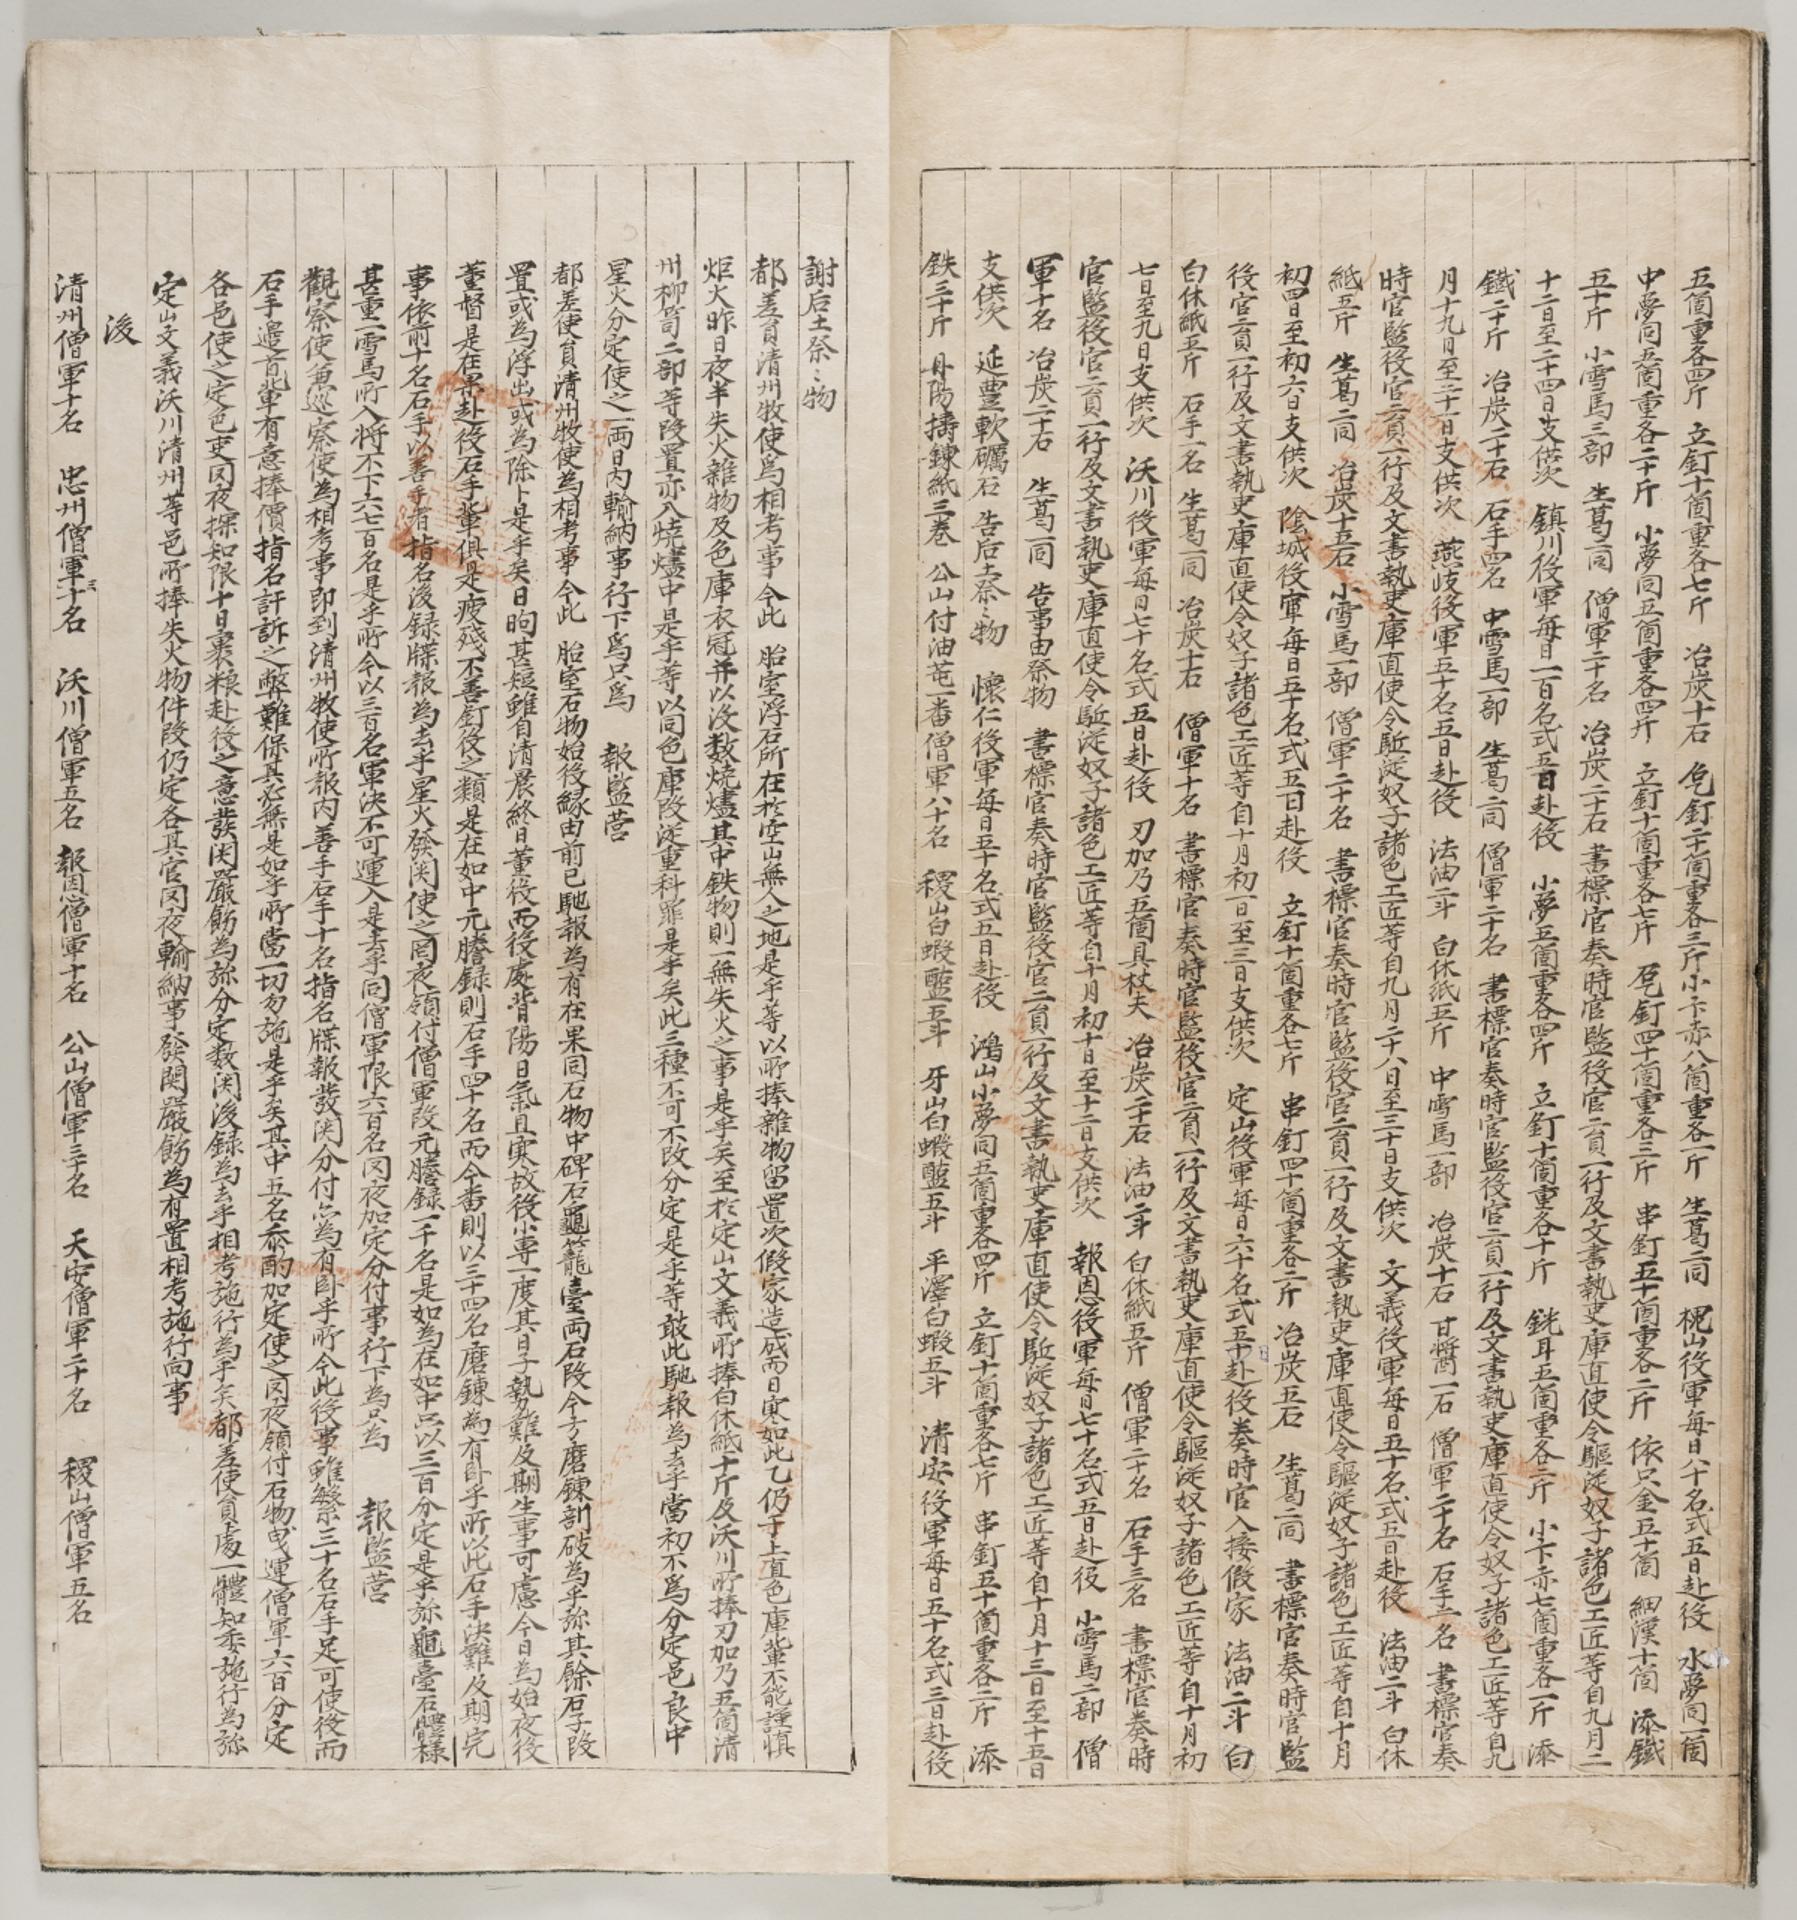 五箇重各四斤 立釘十箇重各七斤 冶炭十石 皃釘二十箇重各三斤小卞赤八箇重各一斤 生葛二同 槐山役軍每日八十名式五日赴役 水夢同一箇
中夢同五箇重各二十斤 小夢同五箇重各四斤 立釘十箇重各七斤 皃釘四十箇重各三斤 串釘五十箇重各二斤 依只金五十箇 細漢十箇 添鐵
五十斤 小雪馬三部 生葛二同 僧軍二十名 冶炭二十石 書標官奏時官監役官二員一行及文書執吏庫直使令驅從奴子諸色工匠等自九月二
十二日至二十四日支供次 鎮川役軍每日一百名式五日赴役 小夢五箇重各四斤 立釘十箇重各十斤 銚耳五箇重各二斤 小卞赤七箇重各一斤 添
鐵二十斤 冶炭二十石 石手四名 中雪馬一部 生葛二同 僧軍二十名 書標官奏時官監役官二員一行及文書執吏庫直使令奴子諸色工匠等自九
月十九日至二十一日支供次 燕岐役軍五十名五日赴役 法油二斗 白休紙五斤 中雪馬一部 冶炭十石 甘醬一石 僧軍二十名 石手二名 書標官奏
時官監役官二員一行及文書執吏庫直使令駈從奴子諸色工匠等自九月二十八日至三十日支供次 文義役軍每日五十名式五日赴役 法油二斗 白休
紙五斤 生葛二同 冶炭十五石 小雪馬一部 僧軍二十名 書標官奏時官監役官二員一行及文書執吏庫直使令驅從奴子諸色工匠等自十月
初四日至初六日支供次 陰城役軍每日五十名式五日赴役 立釘十箇重各七斤 串釘四十箇重各二斤 冶炭五石 生葛二同 書標官奏時官監
役官二員一行及文書執吏庫直使令奴子諸色工匠等自十月初一日至三日支供次 定山役軍每日六十名式五日赴役奏時官入接假家 法油二斗 白
白休紙五斤 石手一名 生葛一同 冶炭十石 僧軍十名 書標官奏時官監役官二員一行及文書執吏庫直使令驅從奴子諸色工匠等自十月初
七日至九日支供次 沃川役軍每日七十名式五日赴役 刃加乃五箇具杖夫 冶炭二十石 法油二斗 白休紙五斤 僧軍二十名 石手三名 書標官奏時
官監役官二員一行及文書執吏庫直使令駈從奴子諸色工匠等自十月初十日至十二日支供次 報恩役軍每日七十名式五日赴役 小雪馬二部 僧
軍十名 冶炭二十石 生葛一同 告事由祭物 書標官奏時官監役官二員一行及文書執吏庫直使令駈從奴子諸色工匠等自十月十三日至十五日
支供次 延豊軟礪石 告后土祭〻物 懷仁役軍每日五十名式五日赴役 鴻山小夢同五箇重各四斤 立釘十箇重各七斤 串釘五十箇重各二斤 添
鉄三十斤 丹陽擣鍊紙三卷 公山付油芚一番僧軍八十名 稷山白蝦醢五斗 牙山白蝦醢五斗 平澤白蝦五斗 清安役軍每日五十名式三日赴役
謝后土祭〻物
都差員清州牧使爲相考事今此 胎室浮石所在於空山無人之地是乎等以所捧雜物留置次假家造成而日寒如此乙仍于上直色庫輩不能謹愼
炬火昨日夜半失火雜物及色庫衣冠幷以沒數燒燼其中鉄物則一無失火之事是乎矣至於定山文義所捧白休紙十斤及沃川所捧刃加乃五箇清
州柳笥二部等段置亦入燒燼中是乎等以同色庫段從重科罪是乎矣此三種不可不改分定是乎等敢此馳報爲去乎當初不爲分定邑良中
星火分定使之一兩日內輸納事行下爲只爲 報監營
都差使員清州牧使爲相考事今此 胎室石物始役緣由前已馳報爲有在果同石物中碑石龜籠臺兩石段今方磨鍊剖破爲乎旀其餘石子段
置或爲浮出或爲除卜是乎矣日晌甚短雖自清晨終日董役而役處背陽日氣且寒故役小專一度其日子勢難及期生事可慮今日爲始夜役
董督是在果赴役石手輩俱是疲殘不善釘役之類是在如中元謄錄則石手四十名而今番則以三十四名磨鍊爲有臥乎所以此石手決難及期完
事依前十名石手以善手者指名後錄牒報爲去乎星火發関使之罔夜領付僧軍段元謄錄一千名是如爲在如中只以三百分定是乎旀龜臺石體樣
甚重一雪馬所入將不下六七百名是乎所今以三百名軍決不可運入是去乎同僧軍限六百名罔夜加定分付事行下爲只爲 報監營
觀察使兼巡察使爲相考事即到清州牧使所報內善手石手十名指名牒報發関分付亦爲有臥乎所今此役事雖繁三十名石手足可使役而
石手邉首輩有意捧價指名訐訴之弊難保其必無是如乎所當一切勿施是乎矣其中五名叅酌加定使之罔夜領付石物曳運僧軍六百分定
各邑使之定色吏罔夜探知限十日裹粮赴役之意發関嚴飭爲旀分定數関後錄爲去乎相考施行爲乎矣都差使員處一體知委施行爲旀
定山文義沃川清州等邑所捧失火物件段仍定各其官罔夜輸納事發関嚴飭爲有置相考施行向事
後
清州僧軍十名 忠州僧軍三十名 沃川僧軍五名 報恩僧軍十名 公山僧軍三十名 天安僧軍二十名 稷山僧軍五名